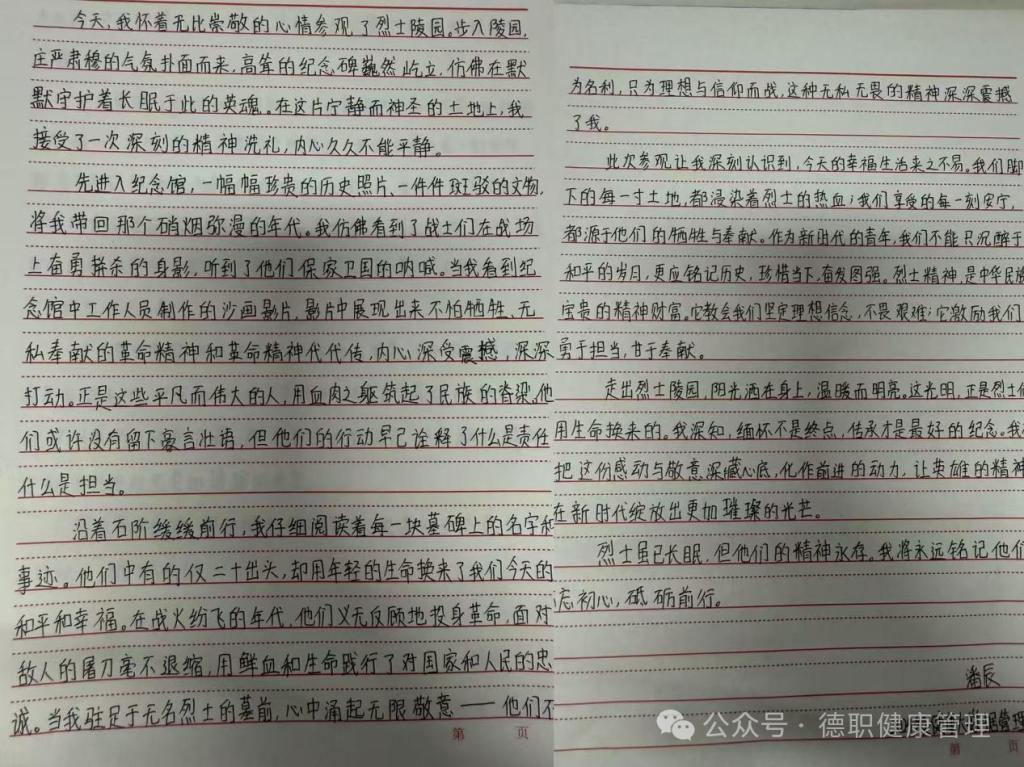 今天,我怀着无比崇敬的心情参观了烈士陵园。步入陵园,
庄严肃穆的气氛扑面而来,高耸的纪念碑巍然屹立,仿佛在默
默守护着长眠于此的英魂。在这片宁静而神圣的土地上,我
接受了一次深刻的精神洗礼,内心久久不能平静。
先进入纪念馆,一幅幅珍贵的历史照片、一件件斑驳的文物,
将我带回那个硝烟弥漫的年代。我仿佛看到了战士们在战场
上奋勇拼杀的身影,听到了他们保家卫国的呐喊。当我看到纪
念馆中工作人员制作的沙画影片,影片中展现出来不怕牺牲、无
私奉献的革命精神和革命精神代代传,内心深受震撼,深深
打动。正是这些平凡而伟大的人,用血肉之躯筑起了民族的脊梁。他
们或许没有留下豪言壮语,但他们的行动早已诠释了什么是责任
什么是担当。
沿着石阶缓缓前行,我仔细阅读着每一块墓碑上的名字和
事迹。他们中有的仅二十出头,却用年轻的生命换来了我们今天的
和平和幸福。在战火纷飞的年代,他们义无反顾地投身革命,面对
敌人的屠刀毫不退缩,用鲜血和生命践行了对国家和人民的忠
诚。当我驻足于无名烈士的墓前,心中涌起无限敬意——他们不
第 页
为名利,只为理想与信仰而战,这种无私无畏的精神深深震撼
了我。
此次参观让我深刻认识到,今天的幸福生活来之不易。我们脚
下的每一寸土地,都浸染着烈士的热血;我们享受的每一刻安宁,
都源于他们的牺牲与奉献。作为新时代的青年,我们不能只沉醉于
和平的岁月,更应铭记历史,珍惜当下,奋发图强。烈士精神,是中华民族
宝贵的精神财富。它教会我们坚定理想信念,不畏艰难;它激励我们
勇于担当,甘于奉献。
走出烈士陵园,阳光洒在身上,温暖而明亮。这光明,正是烈士们
用生命换来的。我深知,缅怀不是终点,传承才是最好的纪念。我
把这份感动与敬意深藏心底,化作前进的动力,让英雄的精神
在新时代绽放出更加璀璨的光芒。
烈士虽已长眠,但他们的精神永存。我将永远铭记他们
志初心,砥砺前行。
潘辰
公众号·德职健康管理
第 页